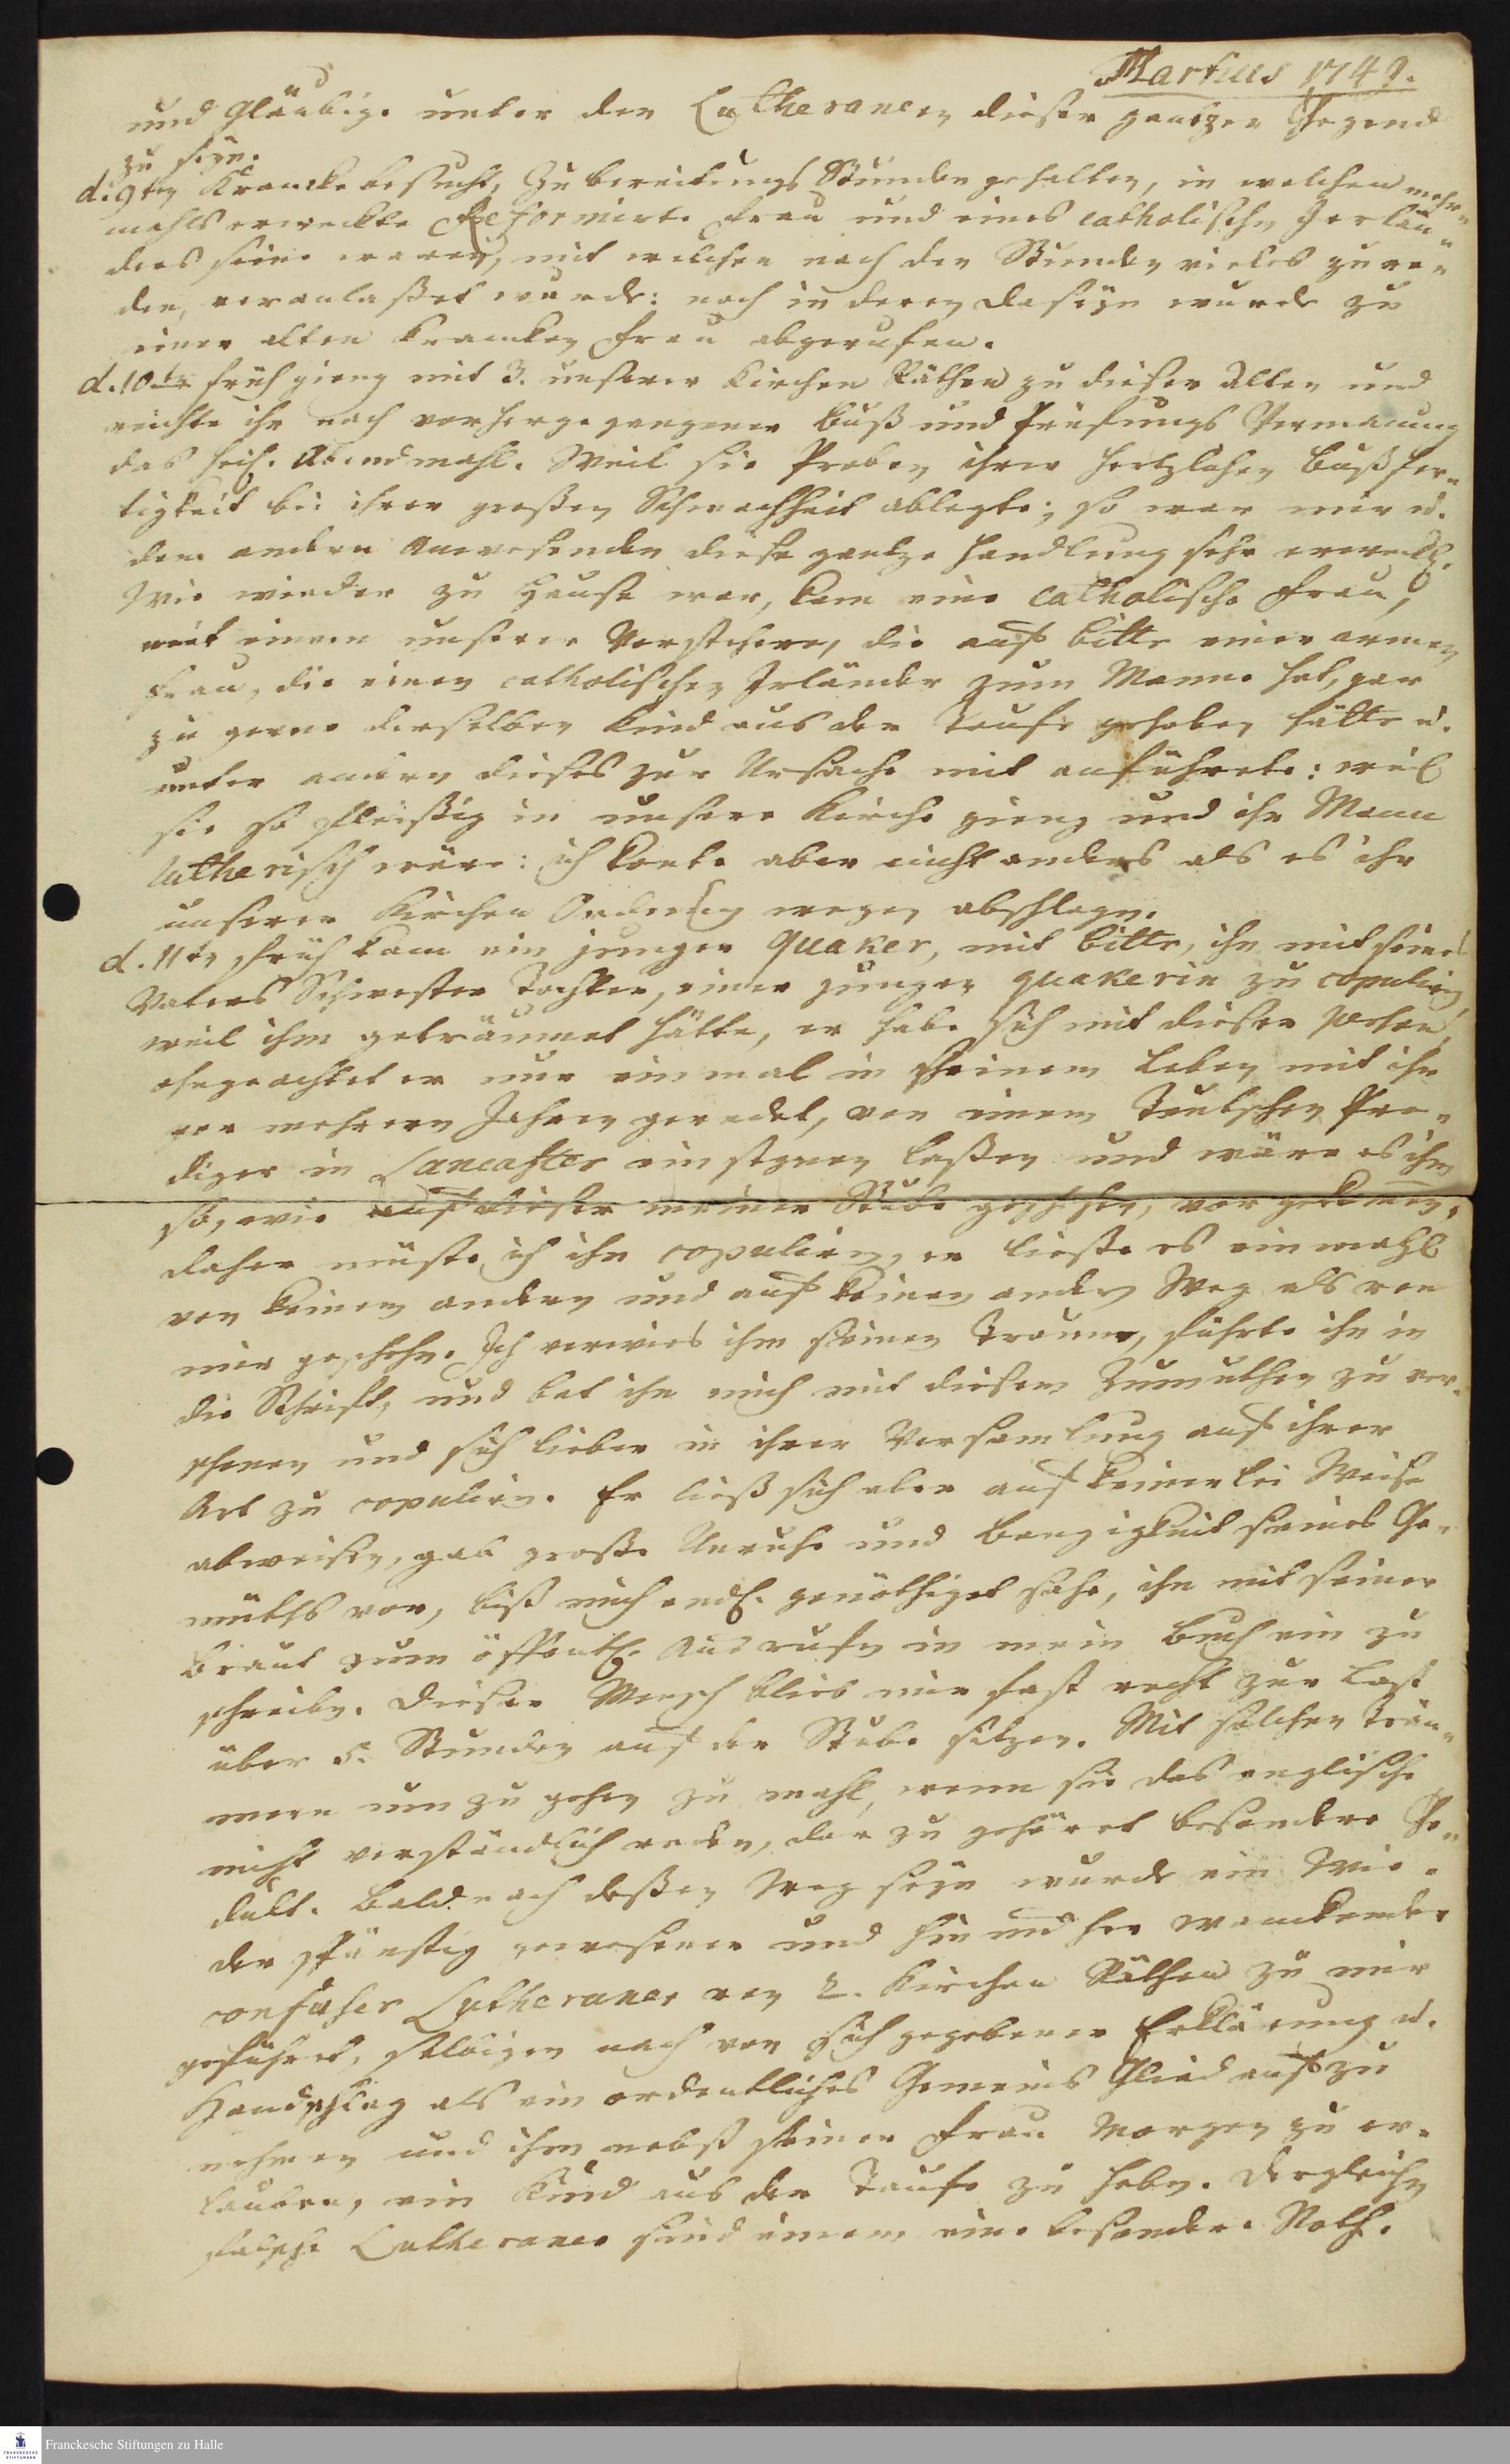 Martius 1749.
und Gläubige unter den Lutheranern dieser gantzen Gegend
zu seyn.
d. 9ten Krancke besucht, Zubereitungs Stunden gehalten, in welchen mehr-
mahls erweckte Reformirte Frau und eines catholischen Jrlän-
ders seine waren, mit welchen nach den Stunden vieles zu re-
den, veranlaßet wurde: noch in deren daseyn wurde zu
einer alten krancken Frau abgerufen.
d. 10te früh gieng mit 3. unserer Kirchen Räthen zu dieser Alten und
reichte ihr nach vorhergegangener Buß und Prüfungs Vermanung
das heil. Abendmahl. Weil sie Proben ihrer hertzlichen Bußfer-
tigkeit bei ihrer großen Schwachheit ablegte; so war mir u.
den andern Anwesenden diese gantze Handlung sehr erweckl.
Wie wieder zu Hause war, kam eine catholische Frau,
mit einem unserer Vorsteher, die auf Bitte einer armen
Frau, die einen catholischen Jrländer zum Manne hat, gar
zu gerne derselben Kind aus der Taufe gehoben hätte u.
unter andern dieses zur Ursache mit anführete: weil
sie so fleißig in unsere Kirche gieng und ihr Mann
lutherisch wäre: ich konte aber nicht anders als es ihr
unserer Kirchen Ordnung wegen abschlagen.
d. 11ten früh kam ein junger Quaker, mit Bitte, ihn mit seines
Vaters Schwester Tochter, einer jungen quakerin zu copuliren,
weil ihm geträumet hätte, er habe sich mit dieser Person,
ohngeachtet er nur einmal in seinem Leben mit ihr
vor mehrern Jahren geredet, von einem Teutschen Pre-
diger in Lancaster einsegnen laßen und wäre es ihm
so, wie auf dieser meiner Stube geschehen, vor gekommen,
daher müste ich ihn copuliren, er ließe es einmahl
von keinem andern und auf keinen andern Weg als von
mir geschehen. Ich verwies ihm seinen Traum, führte ihn in
die Schrift, und bat ihn mich mit diesem Zumuthen zu ver-
schonen und sich lieber in ihrer Versamlung auf ihrer
Art zu copuliren. Er ließ sich aber auf keinerlei Weise
abweisen, gab große Unruhe und Bangigkeit seines Ge-
müths vor, biß mich endl. genöthiget sahe, ihn mit seiner
Braut zum öffentl. Ausrufen in mein Buch ein zu
schreiben. Dieser Mensch blieb mir fast recht zur Last
über 5. Stunden auf der Stube sitzen. Mit solchen Träu-
mern um zu gehen zu mahl, wenn sie das englische
nicht verständlich reden, dar zu gehöret besondere Ge-
dult. Bald nach deßen Weg seyn wurde ein Wie-
der spänstig gewesener und hin und her wanckender
confuser Lutheraner von 2. Kirchen Räthen zu mir
geführet, selbigen nach von sich gegebener Erklärung u.
Handschlag als ein ordentliches Gemeins Glied auf zu
nehmen und ihm nebst seiner Frau Morgen zu er-
lauben, ein Kind aus der Taufe zu heben. Dergleichen
falsche Lutheraner sind einem eine besondere Noth.
Franckesche Stiftungen zu Halle